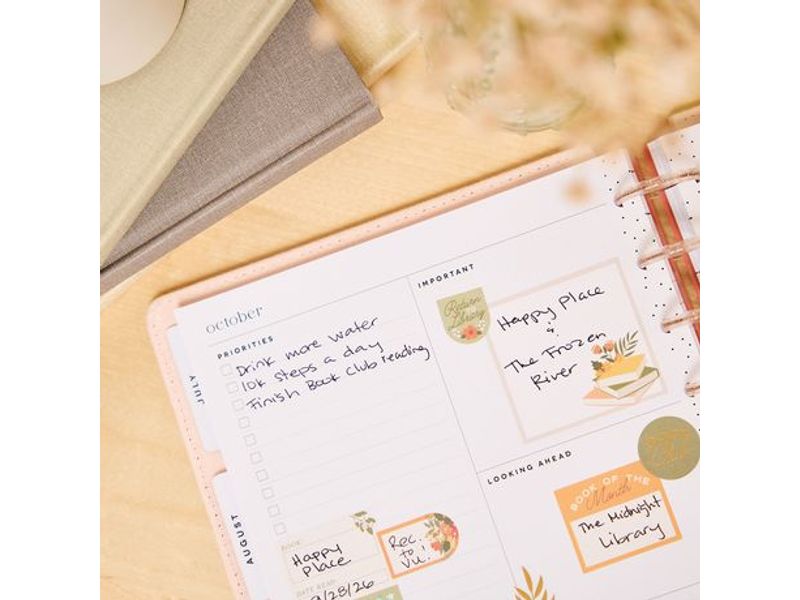 october
PRIORITIES
Drink more water
10k steps a day
Finish Book Club reading
IMPORTANT
Return
Library
Happy Place
&
The Frozen
River
LOOKING AHEAD
BOOK OF THE
Month
The Midnight
Library
JULY
AUGUST
BOOK
Happy
Place
DATE READ
9/28/26
Rec.
to
Vu!